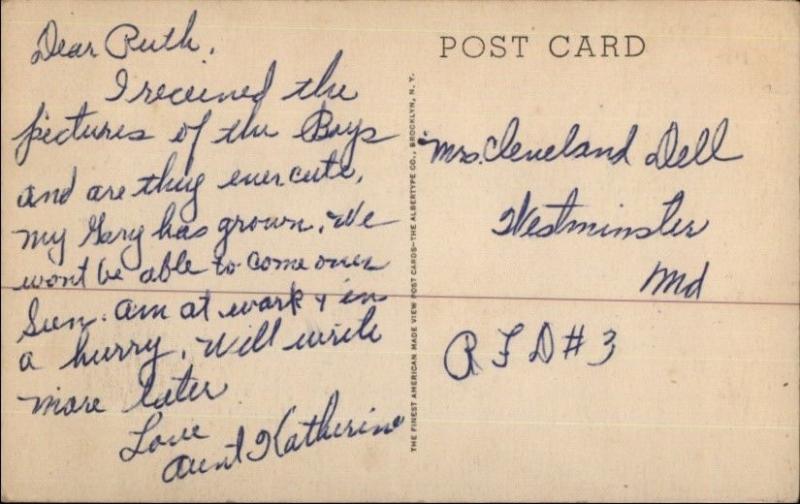 Dear Ruth,
I received the
pictures of the Boys
and are they ever cute.
my Gary has grown. We
wont be able to come over
Sun. am at work & in
a hurry. Will write
more later
Love
Aunt Katherine
POST CARD
THE FINEST AMERICAN MADE VIEW POST CARDS—THE ALBERTYPE CO., BROOKLYN, N. Y.
Mrs. Cleveland Dell
Westminster
Md
R F D # 3